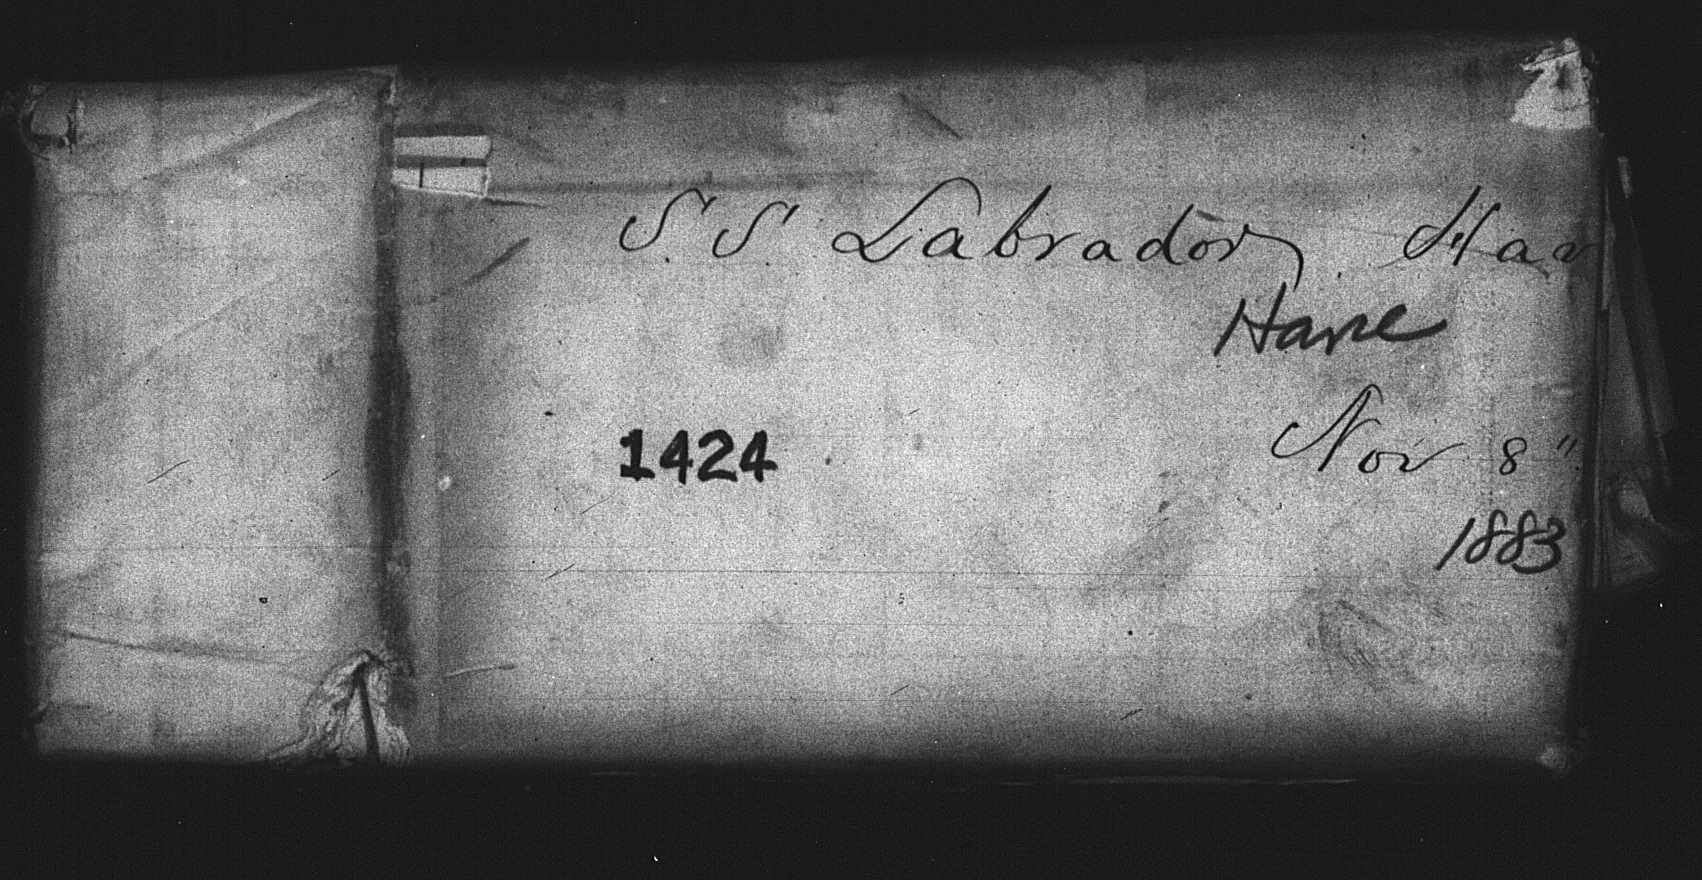 S.S. Labrador, Hav
Havre
1424
Nov 8"
1883